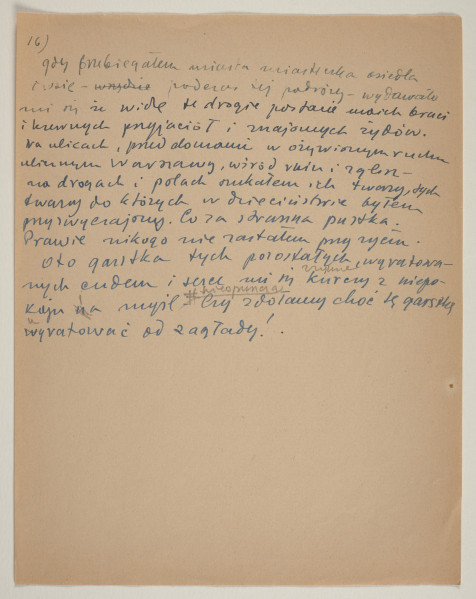 16)
gdy przebiegałem miasta miasteczka osiedla
wsie - wszędzie podczas tej podróży - wydawało
mi się że widzę te drogie postacie moich braci
i krewnych przyjaciół i znajomych żydów.
na ulicach, przed domami w ożywionym ruchu
ulicznym Warszawy, wśród ruin i zgliszcz
na drogach i polach szukałem ich twarzy, tych
twarzy do których w dzieciństwie byłem
przyzwyczajony. Co za straszna pustka.
Prawie nikogo nie zastałem przy życiu.
Oto garstka tych pozostałych, wyratowa-
nych cudem i serce mi się kurczy z niepo-
koju na myśl Czy zdołamy choć tę garstkę
wyratować od zagłady!.